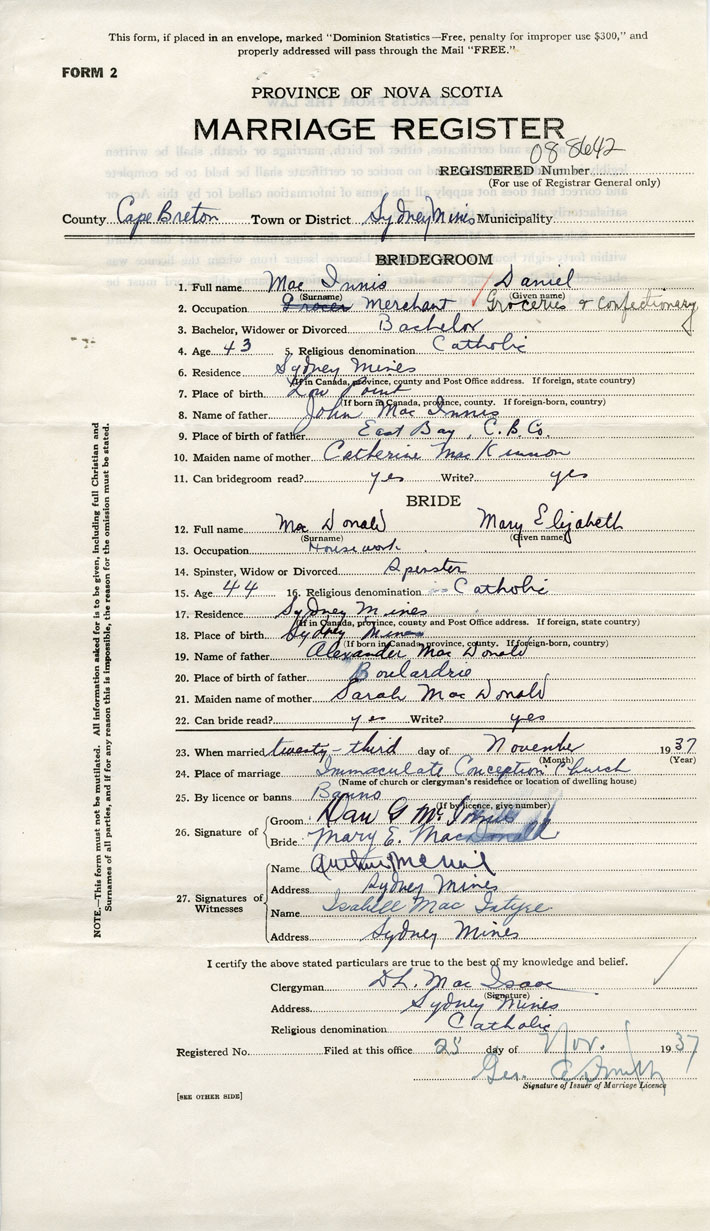 This form, if placed in an envelope, marked "Dominion Statistics—Free, penalty for improper use $300," and
properly addressed will pass through the Mail "FREE."
FORM 2
PROVINCE OF NOVA SCOTIA
MARRIAGE REGISTER
088642
REGISTERED Number
(For use of Registrar General only)
County Cape Breton Town or District Sydney Mines Municipality
BRIDEGROOM
1. Full name Mac Innis Daniel
(Surname) (Given name)
2. Occupation Grocer Merchant Groceries & Confectionary
3. Bachelor, Widower or Divorced Bachelor
4. Age 43 5. Religious denomination Catholic
6. Residence Sydney Mines
(If in Canada, province, county and Post Office address. If foreign, state country)
7. Place of birth Low Point
(If born in Canada, province, county. If foreign-born, country)
8. Name of father John Mac Innis
9. Place of birth of father East Bay, C.B. Co.
10. Maiden name of mother Catherine MacKinnon
11. Can bridegroom read? yes Write? yes
BRIDE
12. Full name Mac Donald Mary Elizabeth
(Surname) (Given name)
13. Occupation Housework
14. Spinster, Widow or Divorced Spinster
15. Age 44 16. Religious denomination Catholic
17. Residence Sydney Mines
(If in Canada, province, county and Post Office address. If foreign, state country)
18. Place of birth Sydney Mines
(If born in Canada, province, county. If foreign-born, country)
19. Name of father Alexander Mac Donald
20. Place of birth of father Boulardrie
21. Maiden name of mother Sarah Mac Donald
22. Can bride read? yes Write? yes
23. When married twenty-third day of November 1937
(Month) (Year)
24. Place of marriage Immaculate Conception Church
(Name of church or clergyman's residence or location of dwelling house)
25. By licence or banns Banns
(If by licence, give number)
26. Signature of
Groom Dan G McInnis
Bride Mary E. MacDonald
27. Signatures of Witnesses
Name Arthur McNeil
Address Sydney Mines
Name Isabell Mac Intyre
Address Sydney Mines
I certify the above stated particulars are true to the best of my knowledge and belief.
Clergyman D.L. Mac Isaac
(Signature)
Address Sydney Mines
Religious denomination Catholic
Registered No. Filed at this office 25 day of Nov. 1937
Geo. Smith
Signature of Issuer of Marriage Licence
[SEE OTHER SIDE]
NOTE.—This form must not be mutilated. All information asked for is to be given, including full Christian and
Surnames of all parties, and if for any reason this is impossible, the reason for the omission must be stated.